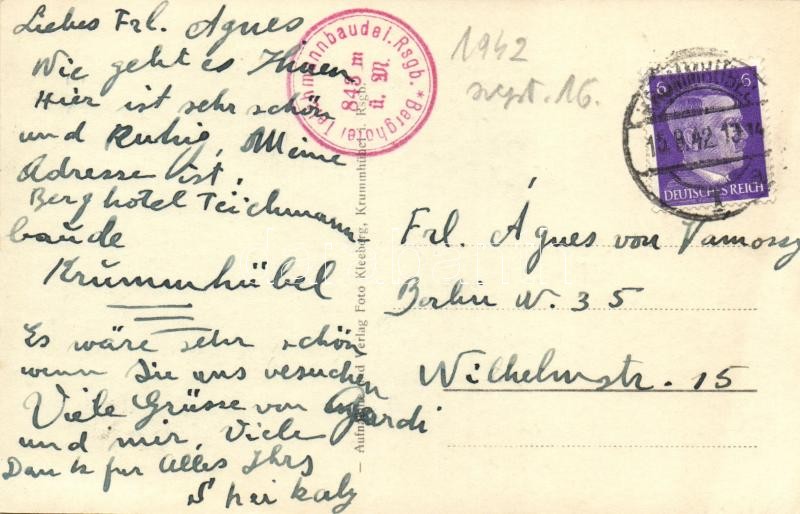 Liebes Frl. Agnes
Wie geht es Ihnen
Hier ist sehr schön
und Ruhig, Meine
Adresse ist,
Berghotel Teichmann
baude
Krummhübel
Es wäre sehr schön
wenn Sie uns vesuchen
Viele Grüsse von
und mir, Viele
Dank für Alles Ihrs
Berghotel Teichmannbaude i. Rsgb. *
843 m
ü. M.
Verlag Foto Kleeberg, Krummhübel i. Rsgb.
1942
sept. 16.
6 6
DEUTSCHES REICH
KRUMMHÜBEL
42 13
a
Frl. Ágnes von Vamossy
Berlin W. 35
Wilhelmstr. 15